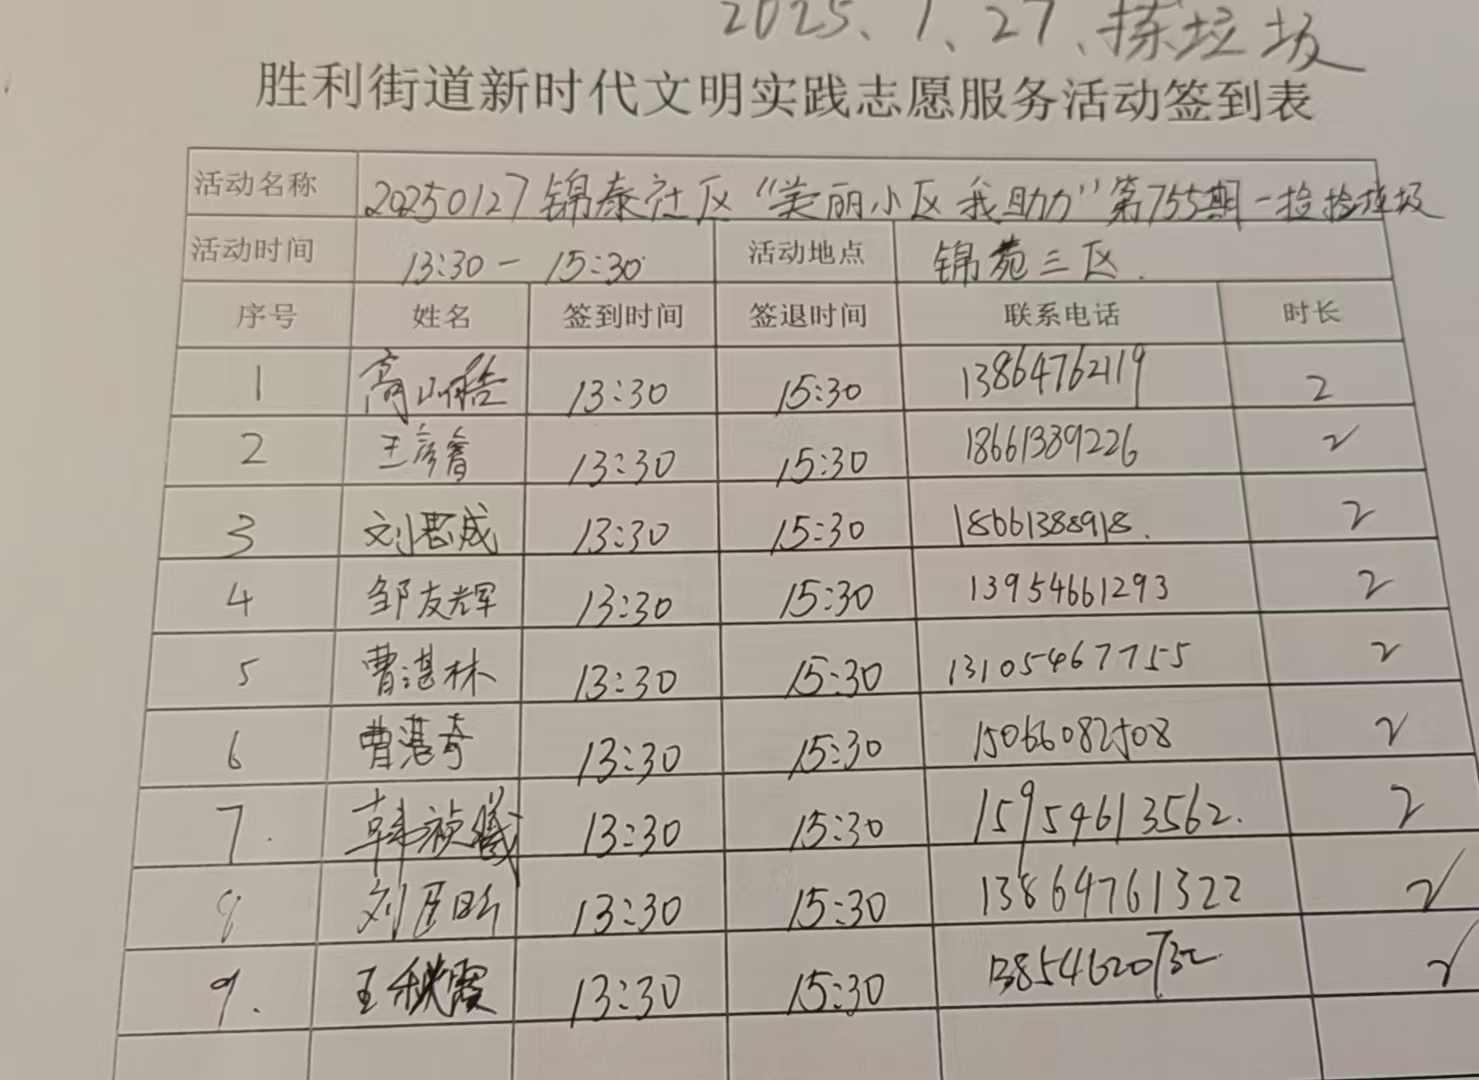 2025.1.27、拣垃圾
胜利街道新时代文明实践志愿服务活动签到表
活动名称 20250127锦泰社区“美丽小区 我助力”第755期-捡捡垃圾
活动时间 13:30 - 15:30 活动地点 锦苑三区.
序号 姓名 签到时间 签退时间 联系电话 时长
1 高山皓 13:30 15:30 13864762119 2
2 王彦睿 13:30 15:30 18661389226 2
3 刘思成 13:30 15:30 18661388918. 2
4 邹友辉 13:30 15:30 13954661293 2
5 曹湛林 13:30 15:30 13105467755 2
6 曹湛奇 13:30 15:30 15066082508 2
7. 韩祯曦 13:30 15:30 15954613562. 2
8 刘昕 13:30 15:30 13864761322 2
9. 王秋霞 13:30 15:30 2